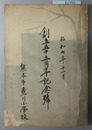 昭和七年十一月
創立五十五周年記念號
熊本市慶德小學校